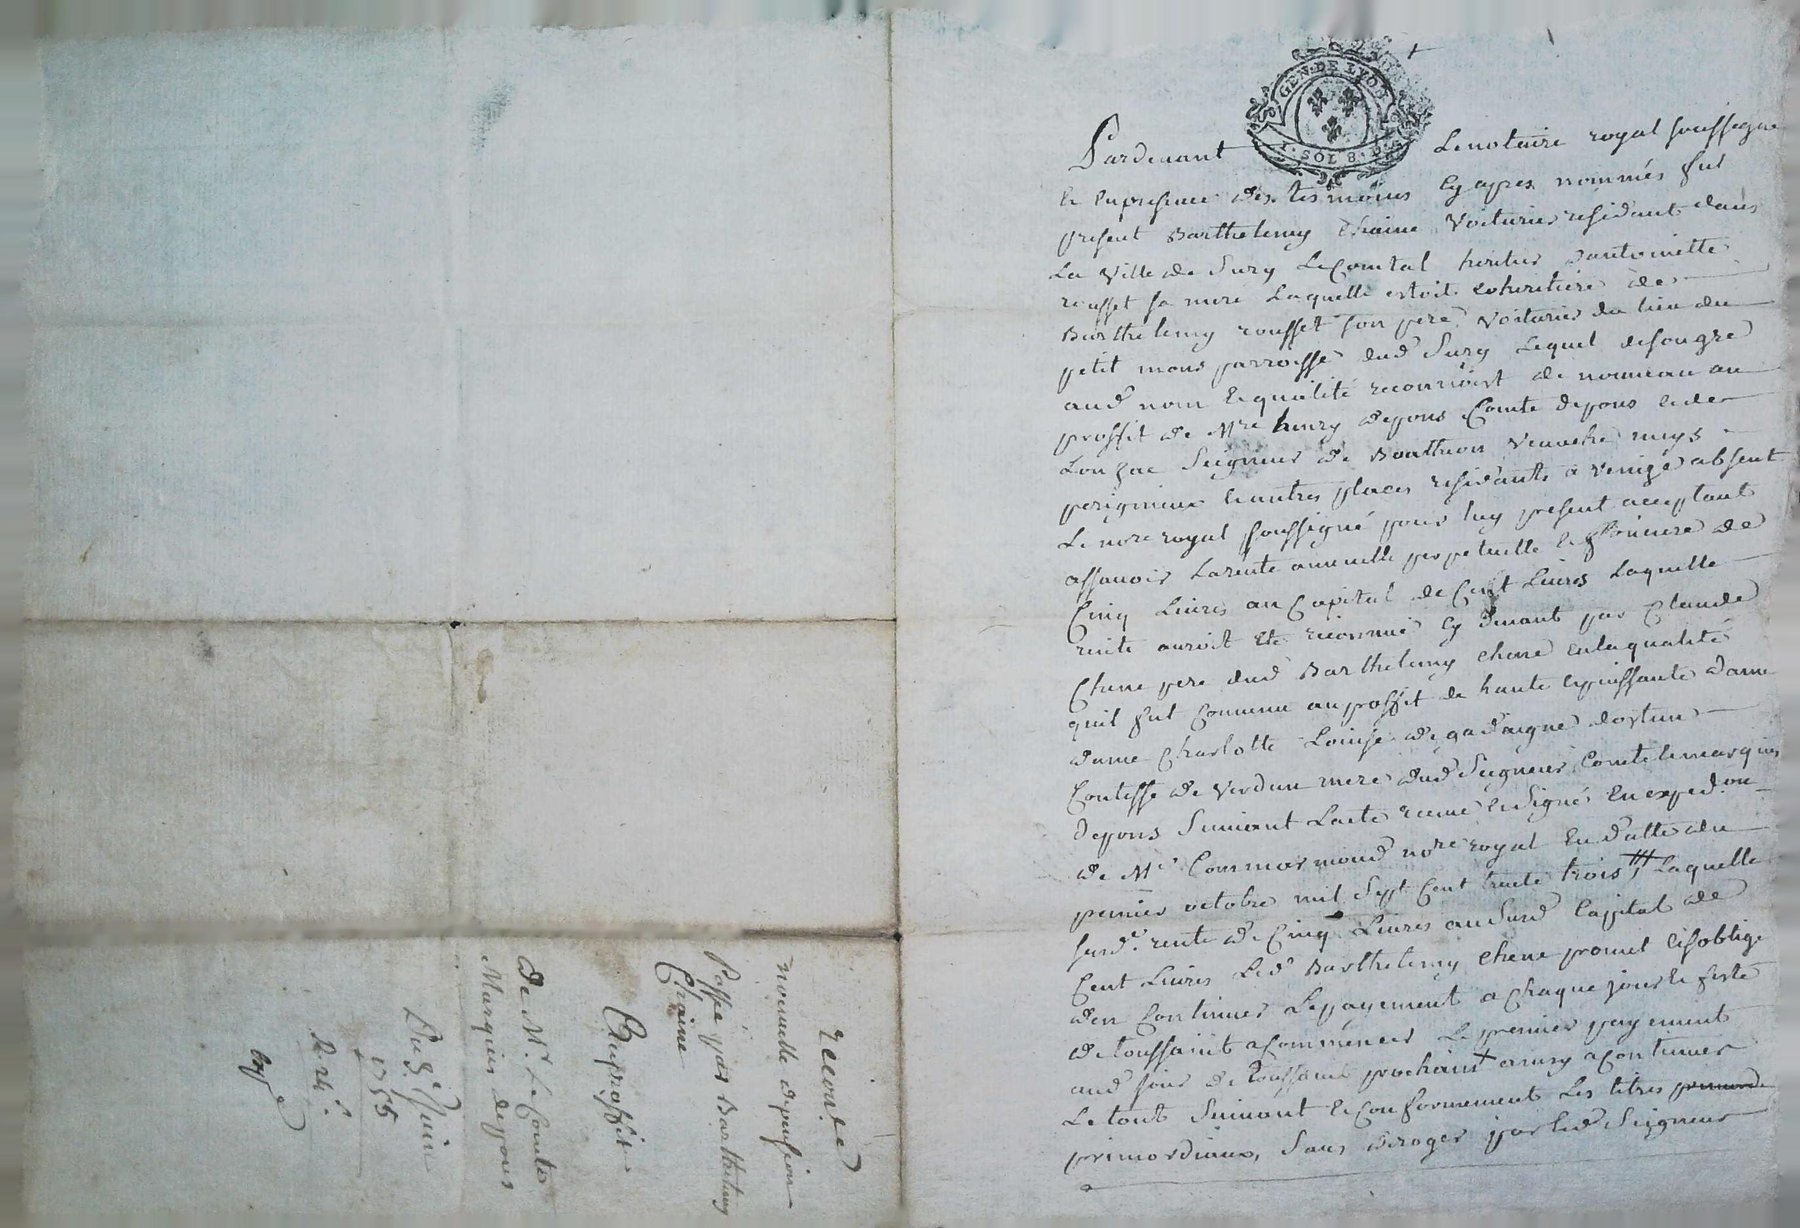 GEN. DE LYON
1. SOL 8. D
Pardevant Le notaire royal soussigné
Et En presence des tesmoins Cy apres nommés fut
present Barthelemy Chaine Voiturier residant dans
La Ville de Sury Le Comtal heritier d'antoinette
rousset sa mere Laquelle estoit coheritiere de
Barthelemy rousset son pere Voiturier du lieu du
petit mont parroisse dud Sury Lequel de son gre
aud nom Et qualité reconnoist de nouveau au
proffit de Mre henry de pons Comte de pons Et de
Lonzac Seigneur de Boutheon Veauche
perigneux Et autres places residants a absent
Le nore royal soussigné pour luy present acceptant
assavoir La rente annuelle perpetuelle Et fonciere de
Cinq Livres au Capital de Cent Livres Laquelle
rente auroit Eté reconnue Cy devant par Claude
Chene pere dud Barthelemy chene En la qualité
quil fut Comme au proffit de haute Et puissante dame
dame Charlotte Louise de gadaigne dostun
Contesse de Verdun mere dud Seigneur Comte Et marquis
de pons Suivant Lacte recue Et Signé En expedion
de Me nore royal En datte du
premier octobre mil Sept Cent trente trois Laquelle
susd. rente de Cinq Livres au Susd Capital de
Cent Livres Led Barthelemy chene promet Et soblige
den Continuer Le payement a Chaque jour Et feste
de toussaint a Commencer Le premier payement
aud jour de toussaint prochain a Continuer
Le tout Suivant Et Conformement Les titres
primordiaux, Sans deroger par led Seigneur
reconse
nouvelle de pension
Passée par Barthelemy
Chaine
Au proffit
de Mr Le Comte
Marquis de pons
Du 8e Juin
1755